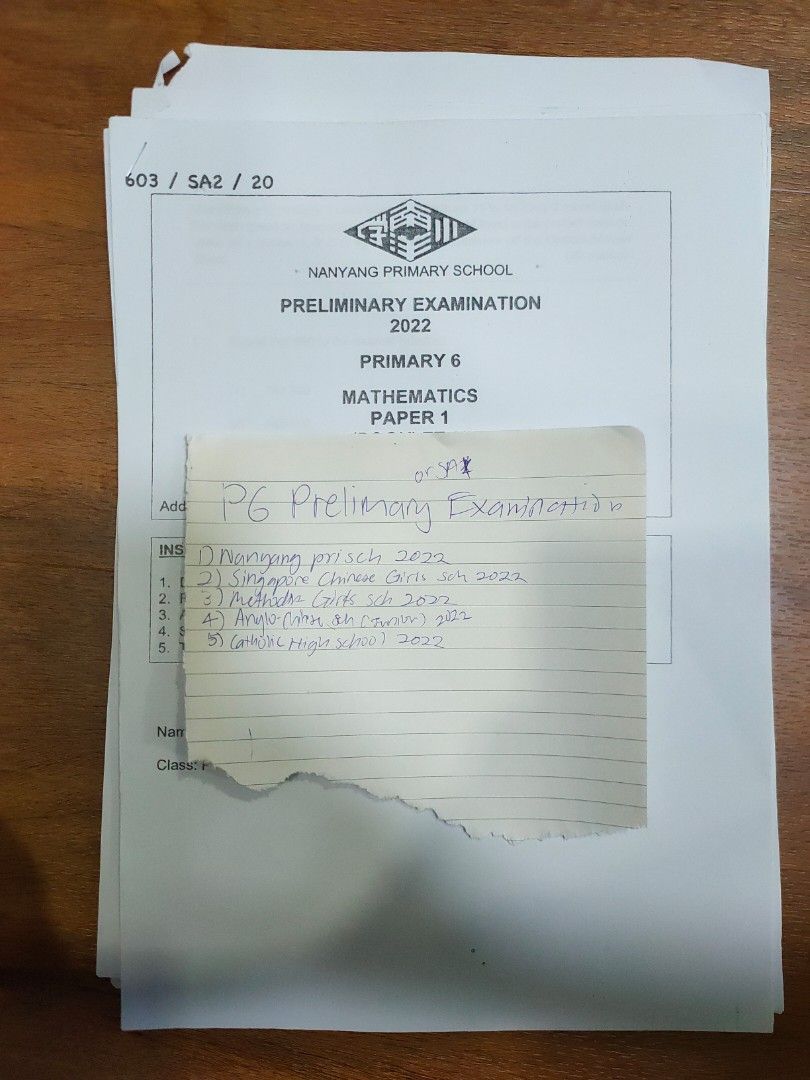 603 / SA2 / 20
NANYANG PRIMARY SCHOOL
PRELIMINARY EXAMINATION
2022
PRIMARY 6
MATHEMATICS
PAPER 1
or SA2
P6 Prelimary Examination
Add
1) Nanyang pri sch 2022
INS
2) Singapore Chinese Girls sch 2022
1.
3) Girls sch 2022
2.
4) Anglo-Chinese sch (Junior) 2022
3.
5) Catholic High school 2022
4.
5.
Nam
Class: